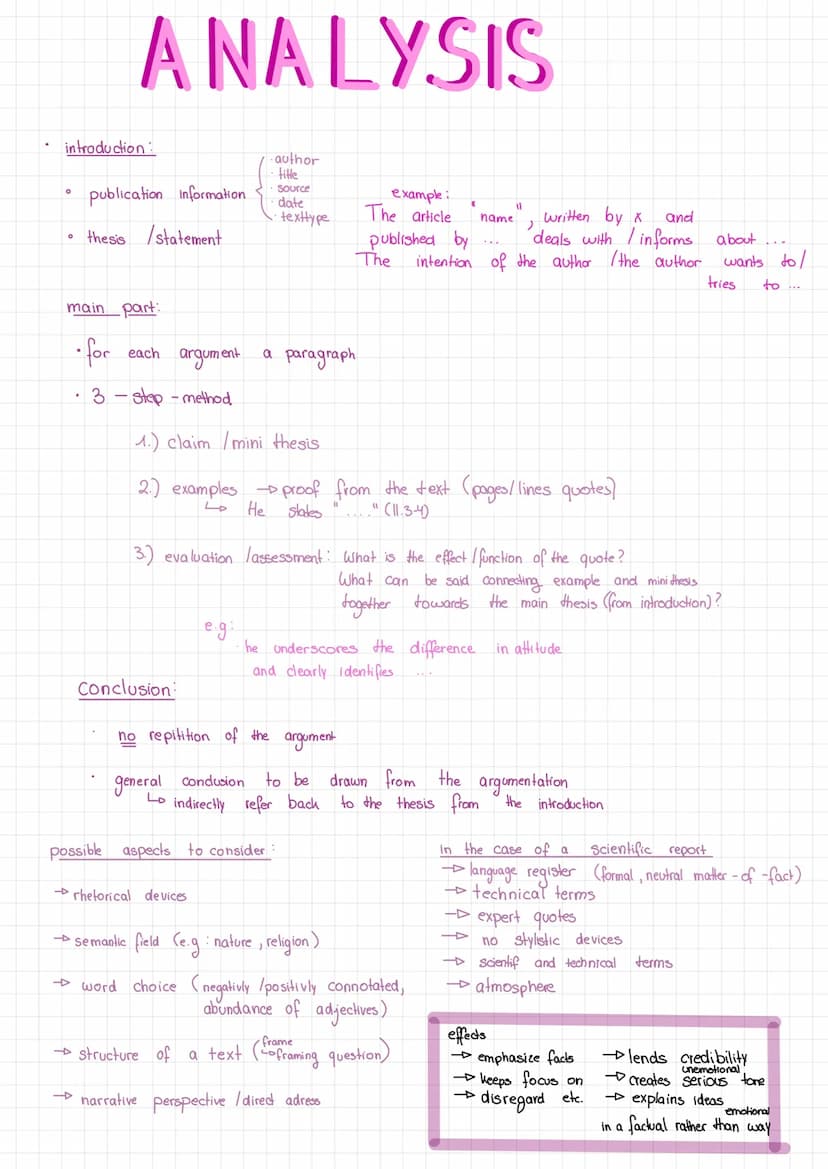 ANALYSIS
· introduction:
° publication information
· author
· title
· source
· date
· texttype
° thesis /statement
example:
The article "name", written by x and
published by ... deals with / informs about ...
The intention of the author /the author wants to/
tries to ...
main part:
· for each argument a paragraph
· 3 - step - method
1.) claim /mini thesis
2.) examples → proof from the text (pages/lines quotes)
↳ He states "...." (ll.3-4)
3.) evaluation /assessment: What is the effect/function of the quote?
What can be said connecting example and mini thesis
together towards the main thesis (from introduction)?
e.g:
he underscores the difference in attitude
and clearly identifies ...
Conclusion:
· no repitition of the argument
· general conclusion to be drawn from the argumentation
↳ indirectly refer back to the thesis from the introduction
possible aspects to consider:
→ rhetorical devices
→ semantic field (e.g: nature, religion)
→ word choice (negativly /positivly connotated,
abundance of adjectives)
→ structure of a text (frame
↳ framing question)
→ narrative perspective /direct adress
in the case of a scientific report
→ language register (formal, neutral matter-of-fact)
→ technical terms
→ expert quotes
→ no stylistic devices
→ scientif and technical terms
→ atmosphere
effects
→ emphasize facts
→ keeps focus on
→ disregard etc.
→ lends credibility
unemotional
→ creates serious tone
→ explains ideas
emotional
in a factual rather than way